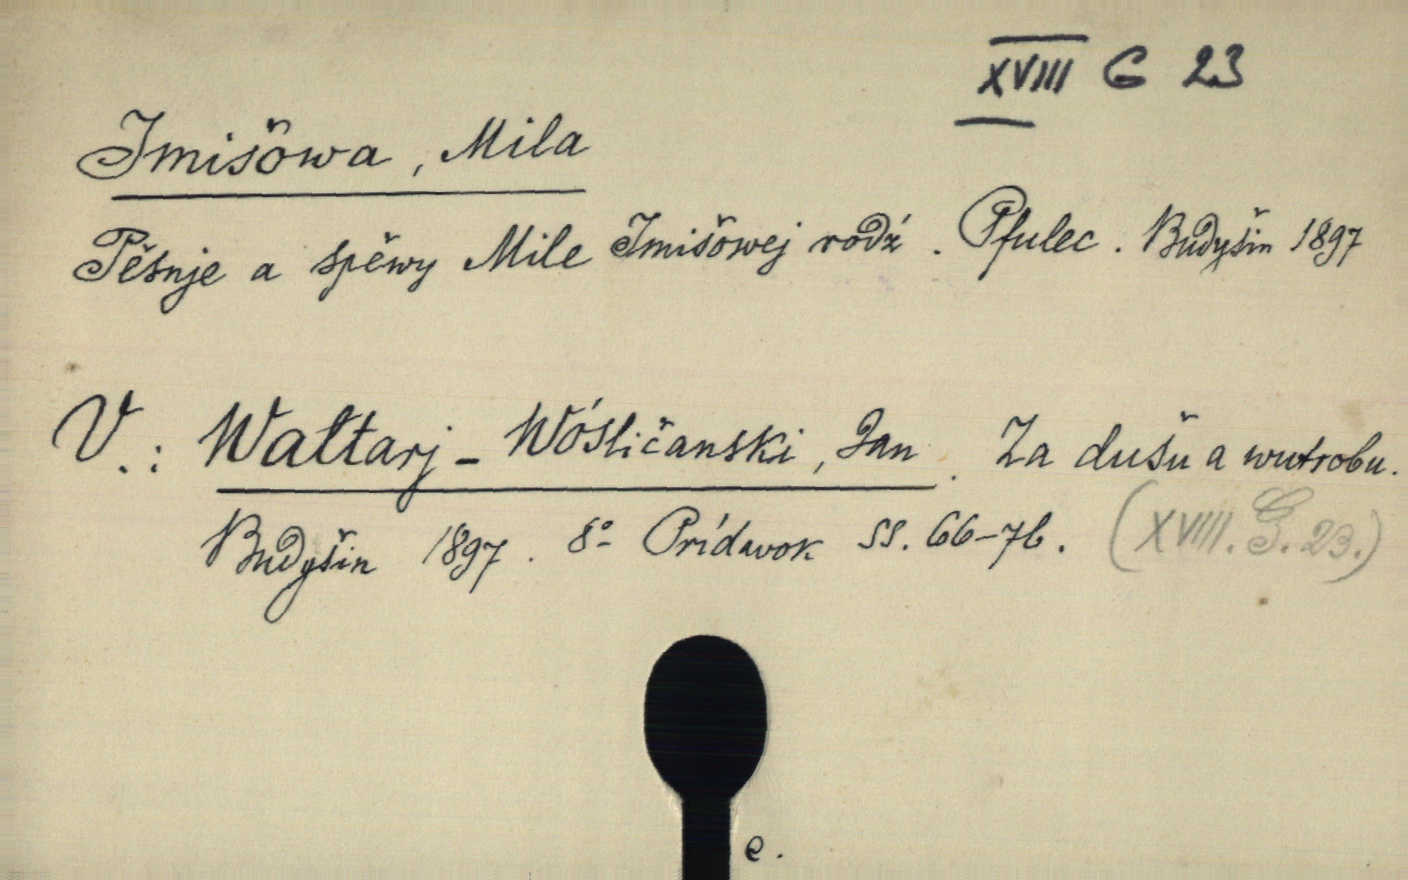 XVIII G 23
Imišowa, Mila
Pěsnje a spěwy Mile Imišowej rodź. Pfulec. Budyšin 1897
V.: Waltarj-Wósličanski, Jan. Za dušu a wutrobu.
Budyšin 1897. 8º Prídavok ss. 66-76. (XVIII. G. 23.)
e.